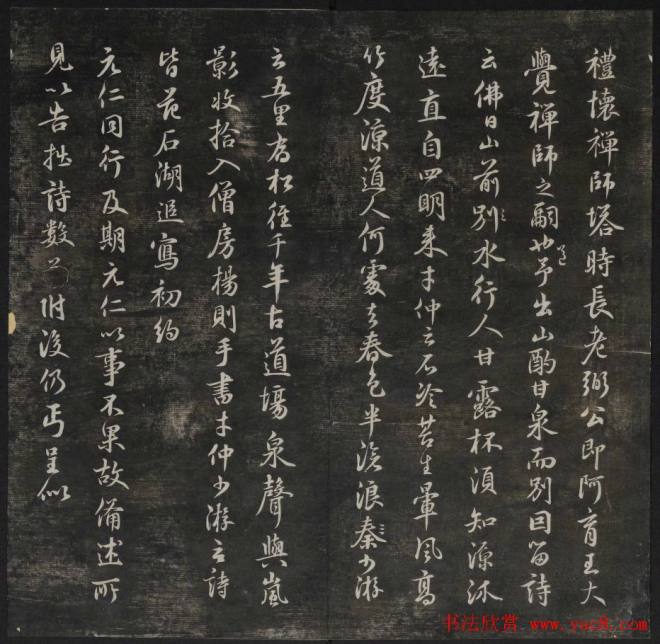 禮懷禪師塔時長老彌公即阿育王大
覺禪師之嗣也予出山酌甘泉而別因留詩
云佛日山前別水行人甘露杯須知源派
遠直自四明來才仲云石冷苔生暈風高
竹度涼道人何處去春色半滄浪秦少游
云五里喬松徑千年古道場泉聲與嵐
影收拾入僧房楊則手書才仲少游之詩
皆范石湖追寫初約
元仁同行及期元仁以事不果故備述所
見以告拙詩數附後仍丐呈似
书法欣赏 www.yac8.com